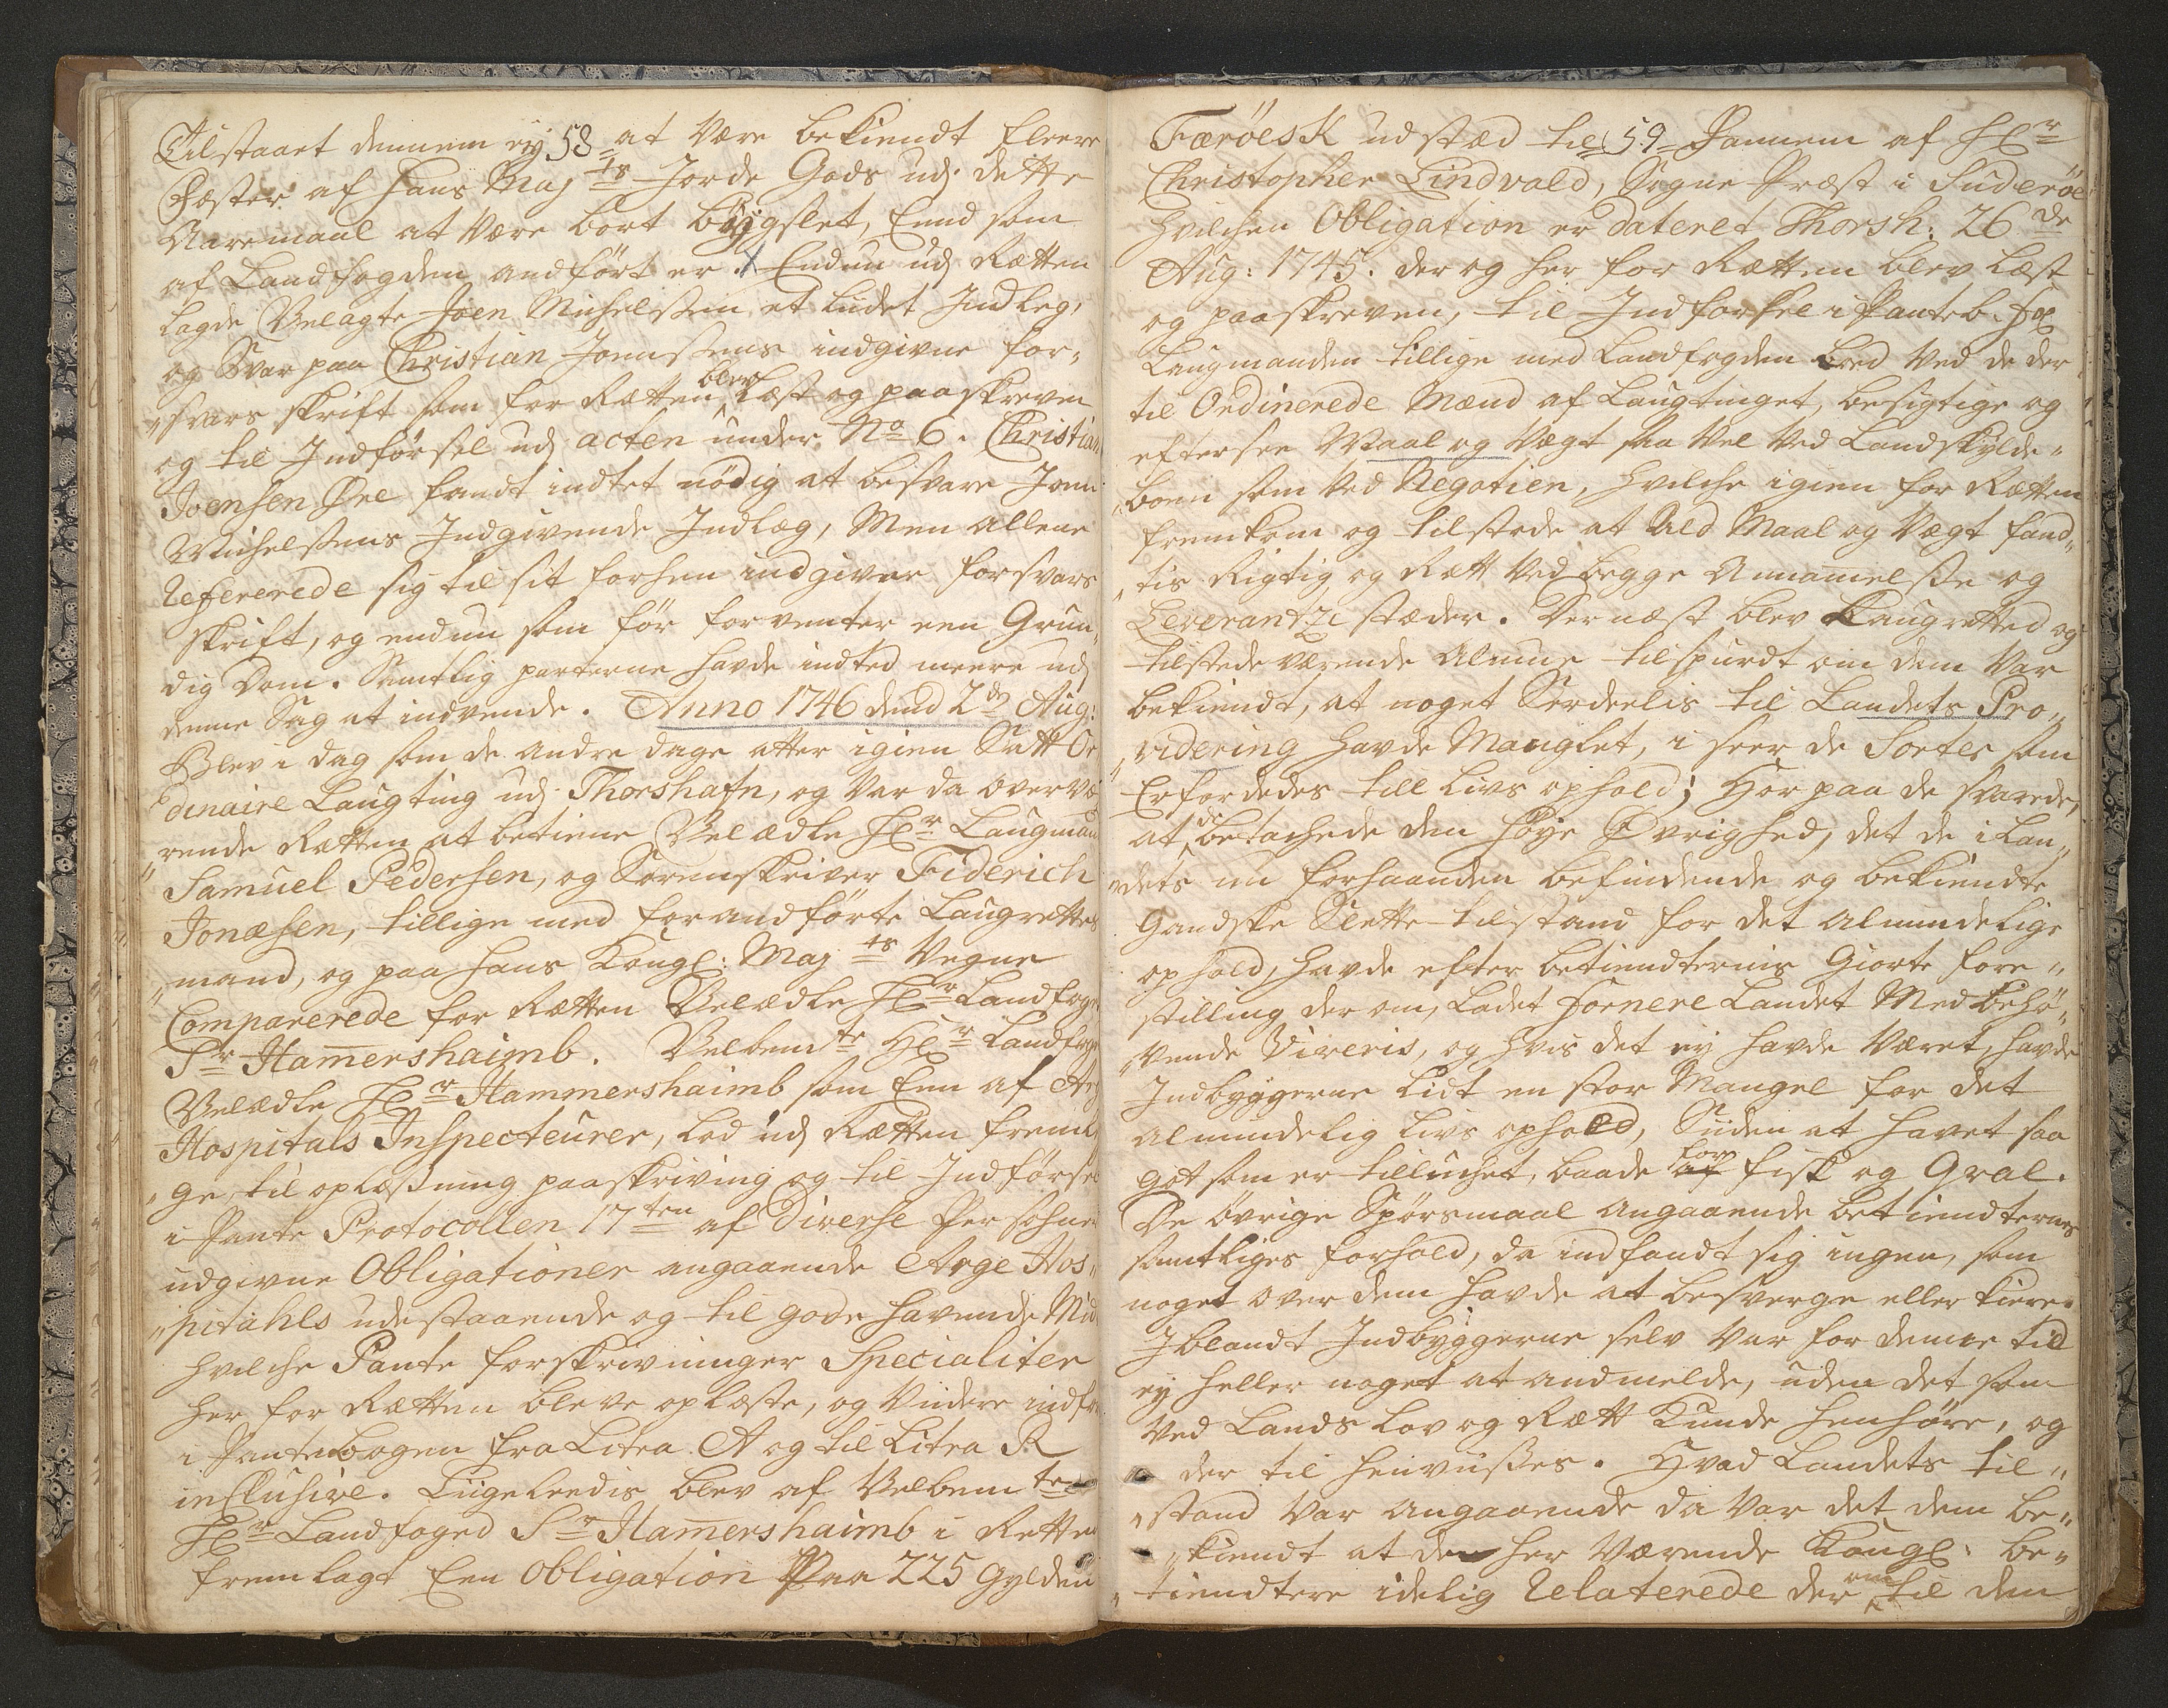 Tilstaaet dennem eij 58 at være bekiendt fleere
Fæster af Hans Maj ts Jorde Gods udj dette
Aaremaal at være bort bøygslet, End som
af Landfogden andført er. Endnu udj Rætten
lagde Velagte Joen Michelsen et lidet Indleg,
og Svar paa Christian Joensens indgivne for„
„svars skrift som for Rætten blev læst og paaskreven
og til Indførsel udj acten under No 6. Christian
Joensen Øre fandt indtet nödig at besvare Joen
Michelsens Indgivende Indlæg, Men allene
Refererede sig til sit forhen indgivne forsvars
skrift, og endnu som før forventer een Grun„
dig Dom. Samtlig parterne havde indted meere udj
denne Sag at indvende. Anno 1746 dend 2de Aug:
Blev i dag som de andre dage atter igien Satt Or
dinaire Laugting udj Thorshafn, og var da overvæ
„rende Rætten at betiene Velædle Hr Laugmand
Samuel Pedersen, og Sorenskriver Fiderich
Jonæsen, tillige med forandførte Laugrettes
„mænd, og paa Hans Kongl: Maj ts Vegne
Comparerede for Rætten Velædle Hr Landfoget
Sr Hamershaimb. Velbem te Hr Landfoget
Velædle Hr Hammershaimb som Een af Arge
Hospitals Inspecteurer, lod udj Rætten fremlæ
„ge til oplæsning paaskriving og til Indførsel
i Pante Protocollen 17 ten af Diverse Persohner
udgivne Obligationer angaaende Arge Hos„
„pitahls udestaaende og til gode havende Mid
hvilche Pante forskrivninger Specialiter
her for Rætten bleve oplæste, og Videre indført
i Pantebogen fra Litra A og til Litra R
inclusive. Liigeleedis blev af Velbem te
Hr Landfoged Sr Hamershaimb i Retten
fremlagt Een Obligation Paa 225 gylden
Færöesk udstæd til 59 Hannem af Hr
Christopher Lindvald, Sogne Præst i Suderöe
hvilchen Obligation er dateret Thorsh: 26 de
Aug: 1745. der og her for Rætten blev læst
og paaskreven, til Indførsel i Panteb. Hr
Laugmanden tillige med Landfogden lod ved de der
til Ordinerede Mænd af Laugtinget, besigtige og
eftersee Maal og Vægt saa vel ved Landskylds„
„boen som ved Negotien, hvilche igien for Rætten
fremkom og tilstode at Ald Maal og Vægt fand„
„tis Rigtig og Rætt ved begge Annamelse og
Leverantze stæder. Dernæst blev Laugretted og
tilstedeværende Almue tilspurdt om dem var
bekiendt, at noget Serdeelis til Landets Pro„
„videring havde Manglet, i sær de Sorter som
Erfordedes till livs ophold; Hør paa de svarede,
at de betachede den høye Øvrighed, det de i Lan„
„dets nu forhaanden befindende og bekiendte
Gandske Slette tilstand for det almindelige
ophold, havde efter betiendternis Giorte fore„
stilling der om, ladet fornere Landet Med behø„
„vende Viveris, og hvis det eij havde været, havde
Indbyggerne lidt en stor Mangel for det
almindelig livs ophold, Siden at havet saa
got som er tilluchet, baade for fisk og Gral.
De övrige Spörsmaal angaaende betiendternes
samtliges forhold, da indfandt sig ingen, som
noget over dem havde at besverge eller kiere.
Iblandt Indbyggerne selv var for denne tid
eij heller noget at andmelde, uden det som
ved Lands Lov og Rætt kunde henhøre, og
der til henviises. Hvad Landets til„
„stand var angaaende da var det dem be„
„kiendt at den her værende Kongl. be„
„tiendtere idelig Relaterede der om til den